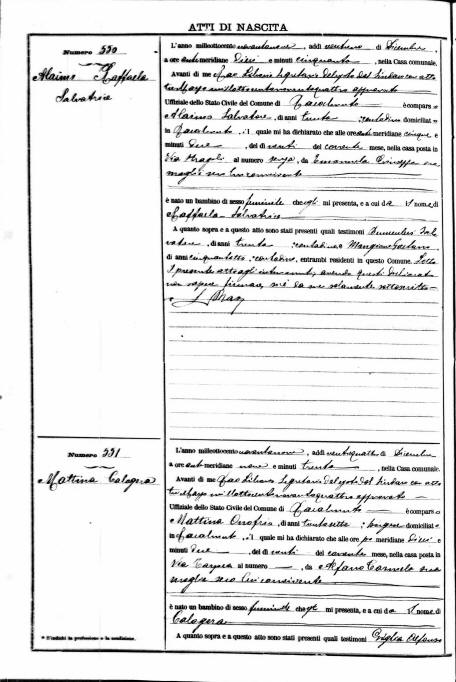 ATTI DI NASCITA
Numero 550
Alaimo Raffaela
Salvatrice
L'anno milleottocento novantanove, addì ventuno di Dicembre,
a ore antemeridiane Dieci e minuti cinquanta, nella Casa comunale.
Avanti di me Segretario delegato dal Sindaco con atto
approvato
Ufficiale dello Stato Civile del Comune di Racalmuto è comparso
Alaimo Salvatore, di anni trenta contadino domiciliato
in Racalmuto, il quale mi ha dichiarato che alle ore antemeridiane cinque e
minuti Dieci, del dì venti del corrente mese, nella casa posta in
Via al numero senza, da Emanuela Giuseppa sua
moglie seco lui convivente
è nato un bambino di sesso femminile che egli mi presenta, e a cui dà il nome di
Raffaela Salvatrice
A quanto sopra e a questo atto sono stati presenti quali testimoni
di anni trenta contadino e Mangione Gaetano
di anni cinquantotto, contadino, entrambi residenti in questo Comune. Letto
il presente atto agli intervenuti, avendo questi dichiarato
non sapere firmare, si è da me solamente sottoscritto
Numero 551
Mattina Calogera
L'anno milleottocento novantanove, addì ventiquattro di Dicembre
a ore antemeridiane nove e minuti trenta, nella Casa comunale.
Avanti di me Segretario delegato dal Sindaco con atto
approvato
Ufficiale dello Stato Civile del Comune di Racalmuto è comparso
Mattina Onofrio, di anni trentasette, borgese domiciliato
in Racalmuto, il quale mi ha dichiarato che alle ore pomeridiane Dieci e
minuti Dieci, del dì venti del corrente mese, nella casa posta in
Via al numero, da Alfano Carmela sua
moglie seco lui convivente
è nato un bambino di sesso femminile che egli mi presenta, e a cui dà il nome di
Calogera
A quanto sopra e a questo atto sono stati presenti quali testimoni Puglia Alfonso
* S'indichi la professione o la condizione.